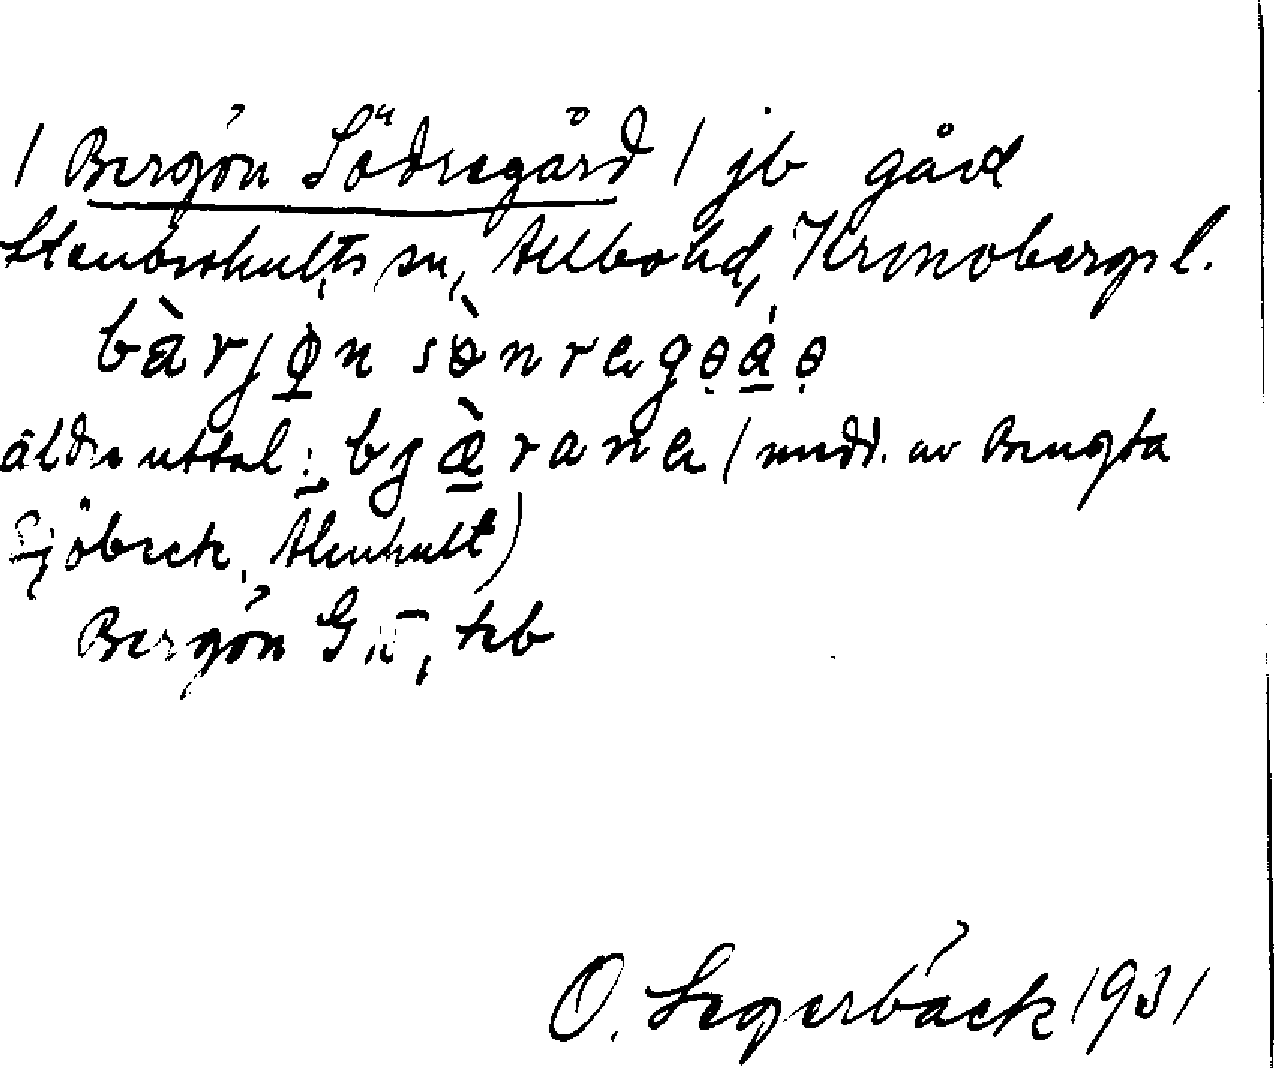 / Bergön Södregård / jb gård
Stenbrohults sn, Allbo hd, Kronobergs l.
bàrjo̲n sònrego̤á̲o̤
äldre uttal: bgæ̲̀rane (medd. av Bengta
Sjöbeck, Älmhult)
Bergön G , kb
O. Segerbäck 1931